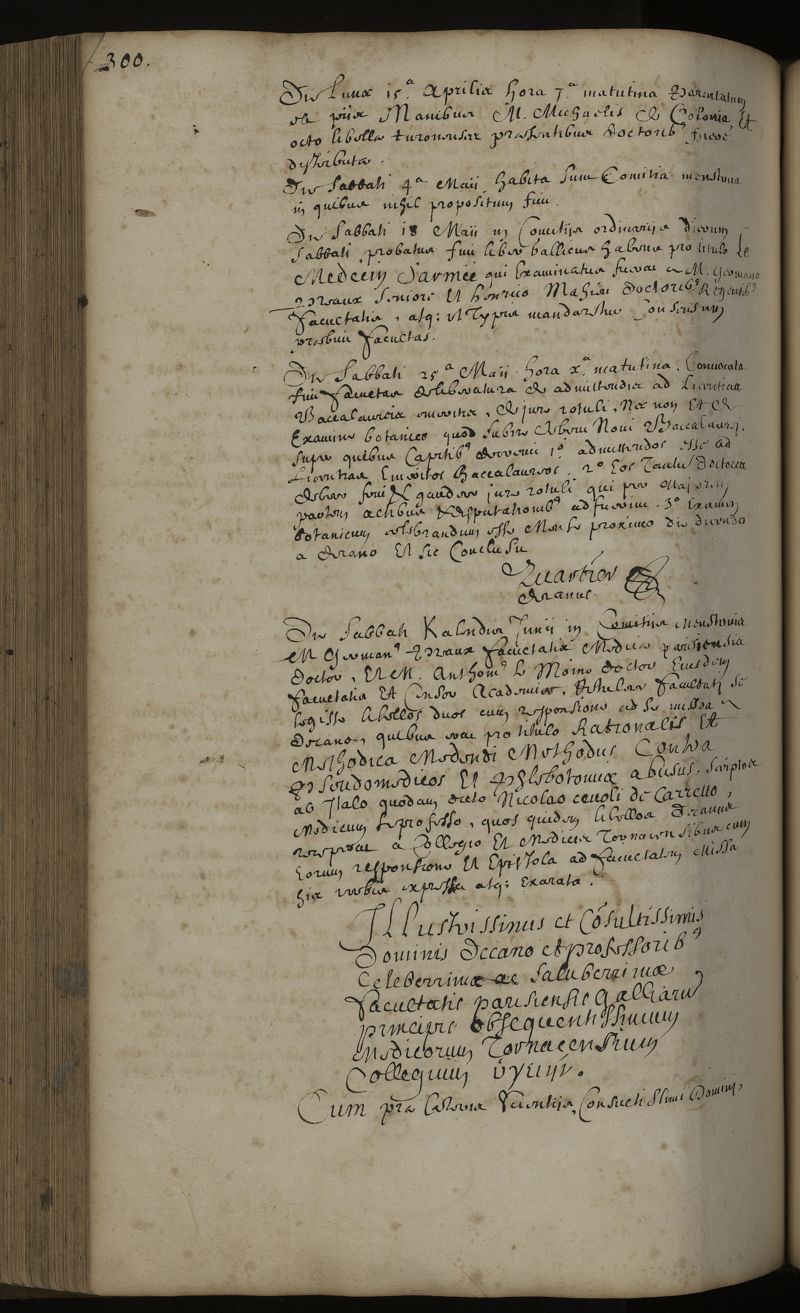 300.
Die Lunæ 15.ª Aprilis hora 7.ª matutina Parentatum
est piis Manibus M. Michaelis de Colonia et
octo libellæ turonenses præsentibus Doctorib⁹ fuere
distributæ.
Die Sabbati 4.ª Maii habita sunt Comitia menstrua
in quibus nihil propositum fuit.
Die Sabbati 18 Maii in Comitijs ordinarijs
Sabbati probatus fuit liber Gallicus habens pro titulo Le
Medecin D'armée qui examinatus fuerat a M. Germano
Preaux seniore et henrico Mahieu Doctorib⁹ Regentib⁹
Facultatis, atq: ut Typis mandaretur Consensum
præbuit Facultas.
Die Sabbati 25.ª Maii hora x.ª matutina. Convocata
fuit Facultas deliberatura de admittendis ad Licentias
Baccalaureis emeritis, de jure rotuli, Nec non et de
Examine botanico quod subire debent Novi Baccalaurei.
super quibus Capitib⁹ decrevit 1º admittendos esse ad
Licentias Emeritos Baccalaureos. 2º Eos Tantu Doctores
debere frui et gaudere jure rotuli qui pro Majorem
partem actibus et disputationib⁹ adfuerint. 3º Examen
botanicum celebrandum esse Mense proximo die dicendo
a Decano et sic Conclusit
Quartier
Decanus.
Die Sabbati Kalendis Junii in Comitijs Menstruis
M. German⁹ Preaux Facultatis Medicæ parisiensis
Doctor, et M. Anthoni⁹ le Moine doctor Ejusdem
Facultatis et Censor Academicus, Retulere Facultati se
legisse libellos duos cum responsione ad se missos a
Decano, quibus erat pro titulo Rationalis et
Methodica Medendi Methodus Contra
Pseudomedicos et Phlebotomiæ abusus. Scriptos
ab Italo quodam dicto Nicolao cevoli de Carretto,
Medicum se professo, quos quidem libellos Decanus
receperat a Collegio et Medicis Tornacensibus cum
Eorum responsione et Epistola ad Facultatem Missa
his verbis expressa atq: Exarata.
Illustrissimis et Cõsultissimis
Dominis Decano et professorib⁹
Celeberrimæ ac saluberrimæ
Facultatis parisiensis Galliaru
principis obsequentissimum
Medicorum Tornacensium
Collegium
Cum præ Cæteris scientijs, Consuetissimi Domini,